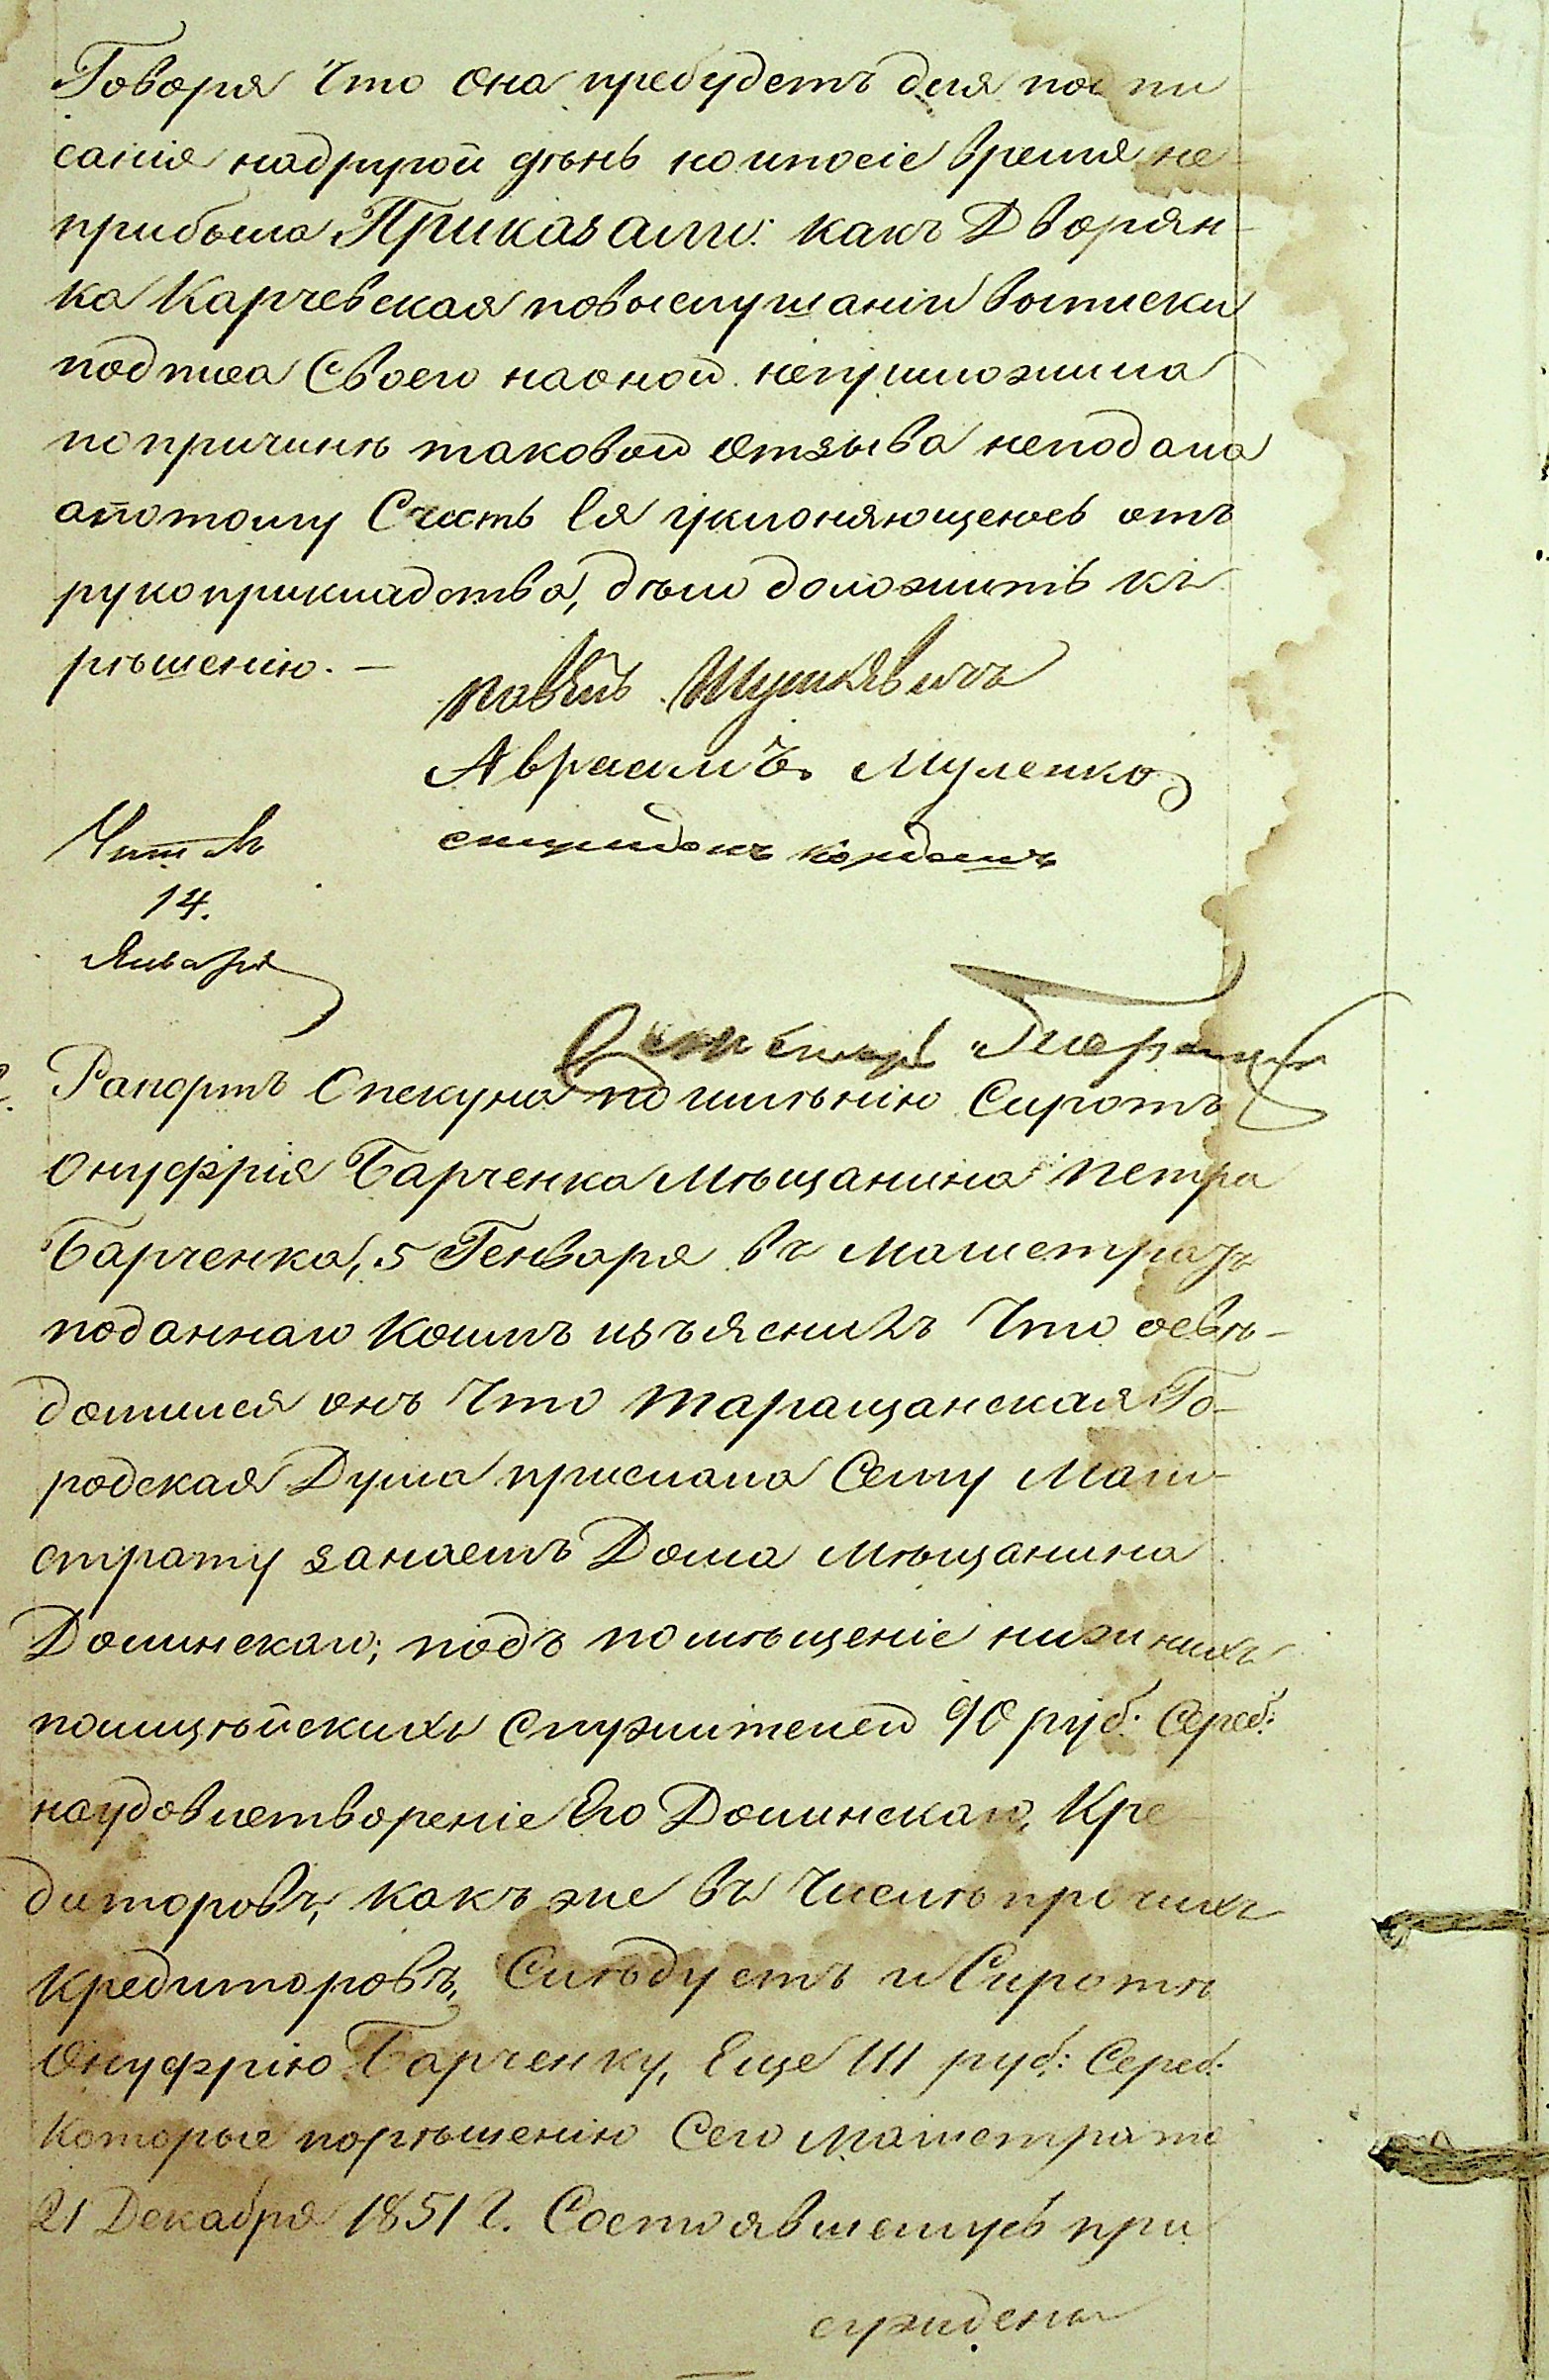 Говоря что она пребудетъ для подпи
санія надругой дѣнь но ипосіе время не
прибыла Приказали: какъ Дворян-
ка Карчевская повыслушаніи выписки
подписа Своего наоной неприложила
попричинѣ таковой отзыва неподала
апотому Счесть Ея уклоняющеюсь отъ
рукоприкладства, дѣло доложить къ
рѣшенію. —
Павелъ Шушкѣвичъ
Авраамъ Муленко
спиридонъ кондашъ
Читалъ
14.
Января
Секретарь
Рапортъ Опекуна по имѣнію Сиротъ
Онуфрія Барченка Мѣщанина Петра
Барченка, 5 Генваря въ Магистратъ
поданнаго коимъ изъяснилъ что освѣ-
домился онъ что Таращанская Го-
родская Дума прислала Сему Маги-
страту занаемъ Дома Мѣщанина
Долинскаго; подъ помѣщеніе нижнихъ
полицѣйскихъ служителей 90 руб. Сереб:
наудовлетвореніе Его Долинскаго, Кре
диторовъ, какъ же въ числѣ прочихъ
кредиторовъ, Слѣдуетъ и Сиротѣ
Онуфрію Барченку, Еще 111 руб: Сереб:
которые порѣшенію Сего Магистрата
21 Декабря 1851 г. Состоявшемусь при
суждены